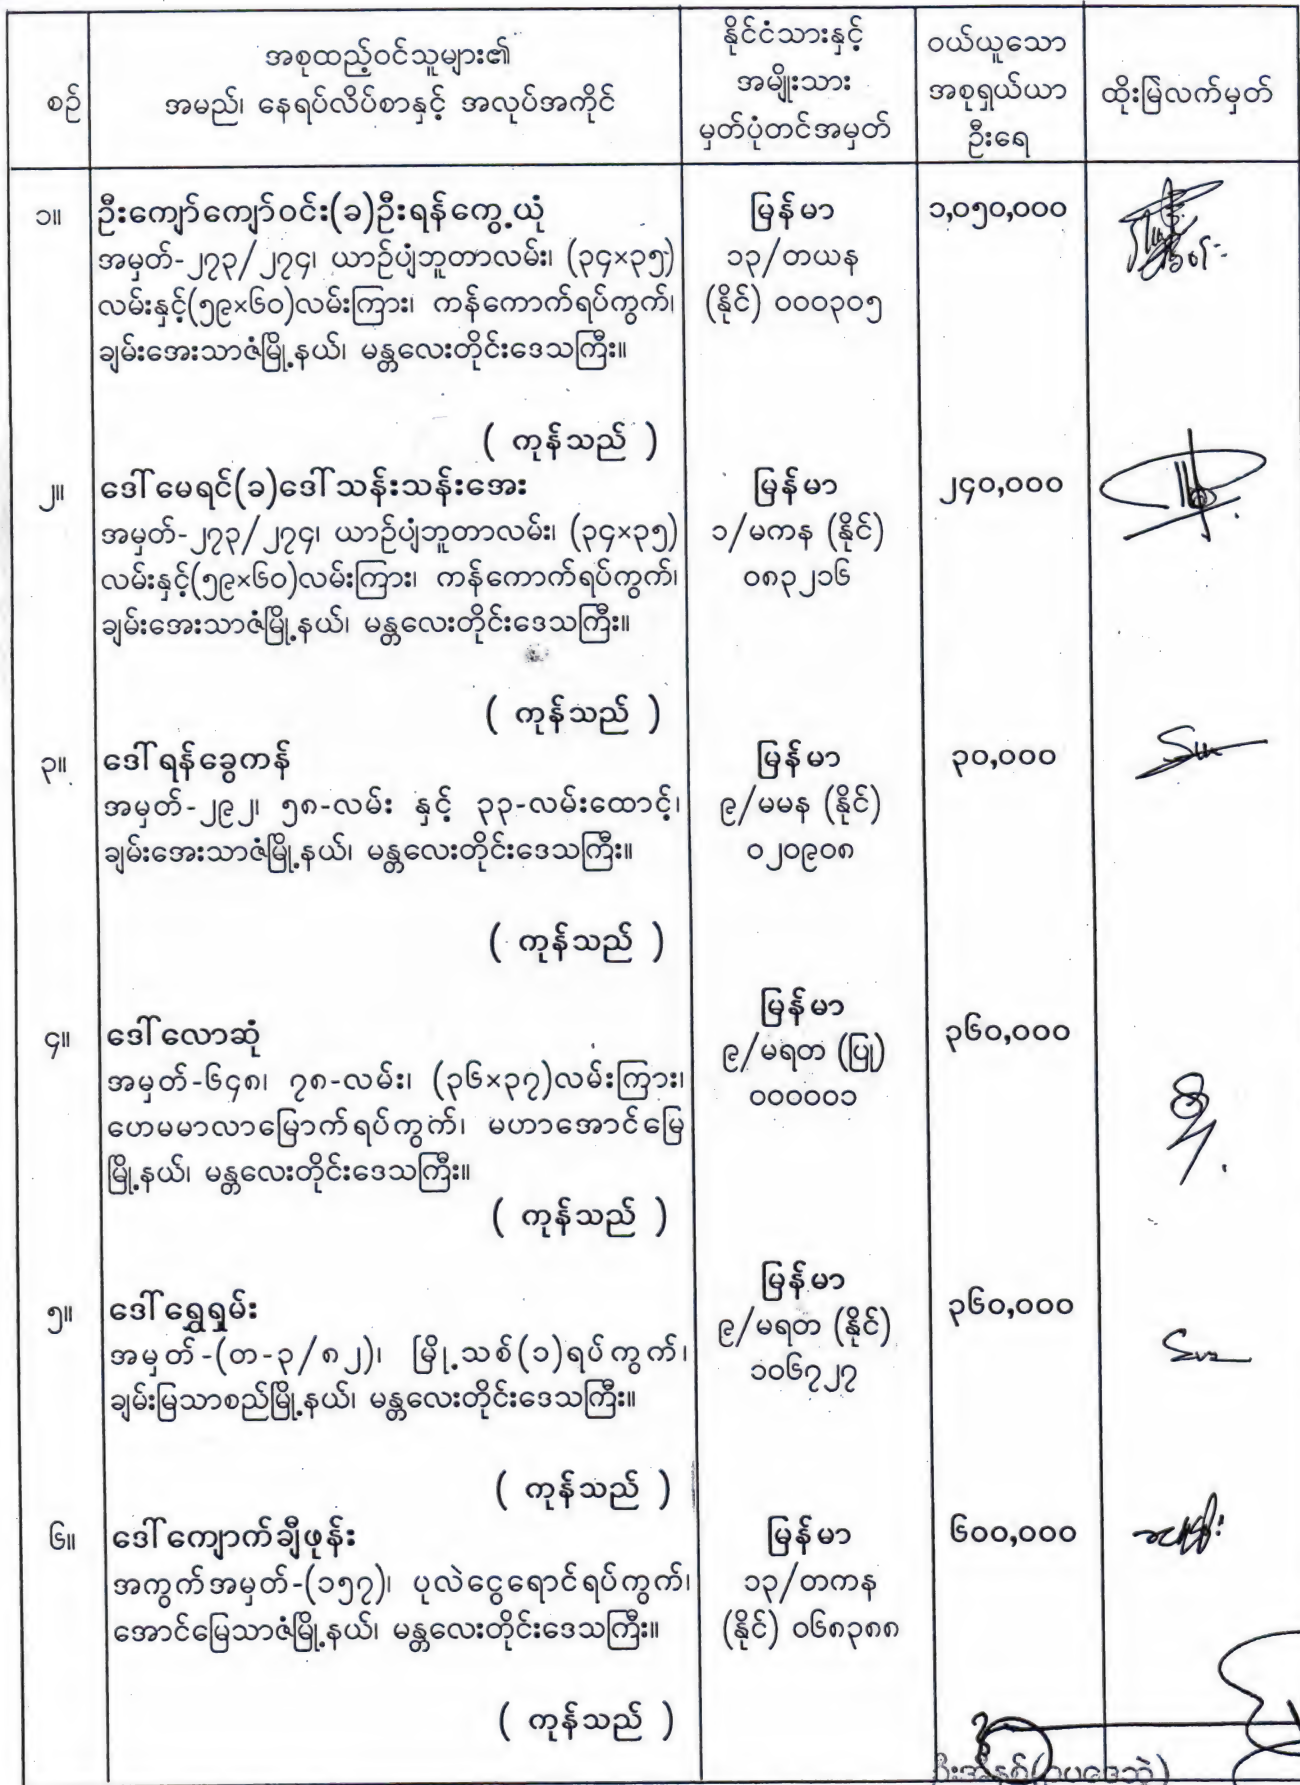 စဉ်
အစုထည့်ဝင်သူများ၏
အမည်၊ နေရပ်လိပ်စာနှင့် အလုပ်အကိုင်
နိုင်ငံသားနှင့်
အမျိုးသား
မှတ်ပုံတင်အမှတ်
ဝယ်ယူသော
အစုရှယ်ယာ
ဦးရေ
ထိုးမြဲလက်မှတ်
၁။
ဦးကျော်ကျော်ဝင်း(ခ)ဦးရန်ကွေ့ယုံ
အမှတ်-၂၇၃/၂၇၄၊ ယာဉ်ပျံဘူတာလမ်း၊ (၃၄×၃၅)
လမ်းနှင့်(၅၉×၆၀)လမ်းကြား၊ ကန်ကောက်ရပ်ကွက်၊
ချမ်းအေးသာဇံမြို့နယ်၊ မန္တလေးတိုင်းဒေသကြီး။
( ကုန်သည် )
မြန်မာ
၁၃/တယန
(နိုင်) ၀၀၀၃၀၅
၁,၀၅၀,၀၀၀
၂။
ဒေါ်မေရင်(ခ)ဒေါ်သန်းသန်းအေး
အမှတ်-၂၇၃/၂၇၄၊ ယာဉ်ပျံဘူတာလမ်း၊ (၃၄×၃၅)
လမ်းနှင့်(၅၉×၆၀)လမ်းကြား၊ ကန်ကောက်ရပ်ကွက်၊
ချမ်းအေးသာဇံမြို့နယ်၊ မန္တလေးတိုင်းဒေသကြီး။
( ကုန်သည် )
မြန်မာ
၁/မကန (နိုင်)
၀၈၃၂၁၆
၂၄၀,၀၀၀
၃။
ဒေါ်ရန်ခွေကန်
အမှတ်-၂၉၂၊ ၅၈-လမ်း နှင့် ၃၃-လမ်းထောင့်၊
ချမ်းအေးသာဇံမြို့နယ်၊ မန္တလေးတိုင်းဒေသကြီး။
( ကုန်သည် )
မြန်မာ
၉/မမန (နိုင်)
၀၂၀၉၀၈
၃၀,၀၀၀
၄။
ဒေါ်လောဆုံ
အမှတ်-၆၄၈၊ ၇၈-လမ်း၊ (၃၆×၃၇)လမ်းကြား၊
ဟေမမာလာမြောက်ရပ်ကွက်၊ မဟာအောင်မြေ
မြို့နယ်၊ မန္တလေးတိုင်းဒေသကြီး။
( ကုန်သည် )
မြန်မာ
၉/မရတ (ပြု)
၀၀၀၀၀၁
၃၆၀,၀၀၀
၅။
ဒေါ်ရွှေရှမ်း
အမှတ်-(တ-၃/၈၂)၊ မြို့သစ်(၁)ရပ်ကွက်၊
ချမ်းမြသာစည်မြို့နယ်၊ မန္တလေးတိုင်းဒေသကြီး။
( ကုန်သည် )
မြန်မာ
၉/မရတ (နိုင်)
၁၀၆၇၂၇
၃၆၀,၀၀၀
၆။
ဒေါ်ကျောက်ချီဖုန်း
အကွက်အမှတ်-(၁၅၇)၊ ပုလဲငွေရောင်ရပ်ကွက်၊
အောင်မြေသာဇံမြို့နယ်၊ မန္တလေးတိုင်းဒေသကြီး။
( ကုန်သည် )
မြန်မာ
၁၃/တကန
(နိုင်) ၀၆၈၃၈၈
၆၀၀,၀၀၀